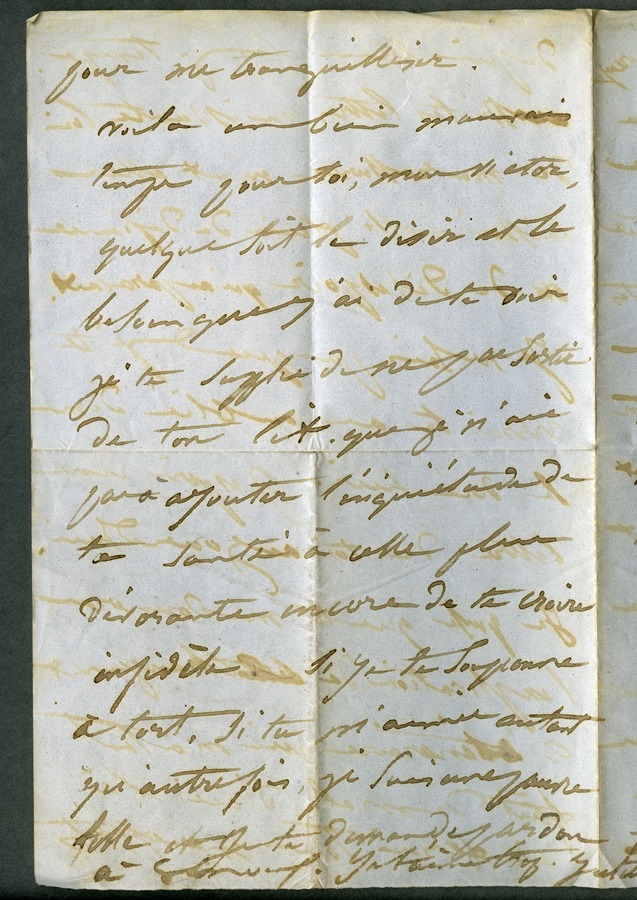 pour me tranquilliser.
voila un bien mauvais
temps pour toi, mon Victor,
quelque soit le désir et le
besoin que j'ai de te voir
je te supplie de ne pas sortir
de ton lit. que je n'aie
pas à ajouter l'inquiétude de
ta santé à celle plus
dévorante encore de te croire
infidèle. Si je te soupçonne
à tort, si tu m'aimes autant
qu'autrefois, je suis une pauvre
folle et je te demande pardon
à Je t'aime trop.